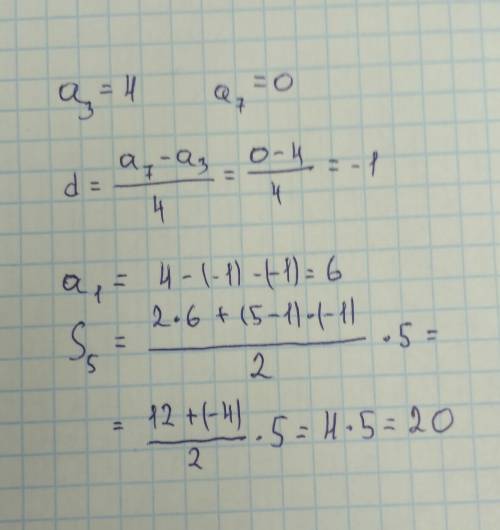 a₃ = 4    a₇ = 0
d = (a₇ - a₃)/4 = (0 - 4)/4 = -1
a₁ = 4 - (-1) - (-1) = 6
S₅ = (2·6 + (5-1)·(-1))/2 · 5 =
= (12 + (-4))/2 · 5 = 4·5 = 20